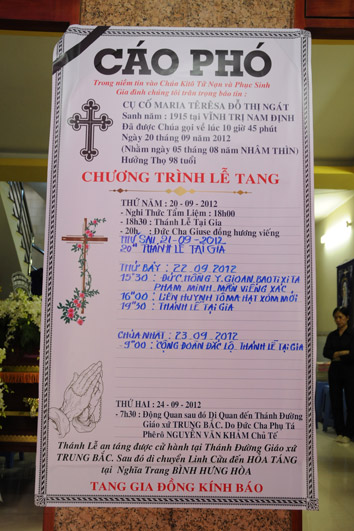 CÁO PHÓ
Trong niềm tin vào Chúa Kitô Tử Nạn và Phục Sinh
Gia đình chúng tôi trân trọng báo tin :
CỤ CỐ MARIA TÊRÊSA ĐỖ THỊ NGÁT
Sanh năm : 1915 tại VĨNH TRỊ NAM ĐỊNH
Đã được Chúa gọi về lúc 10 giờ 45 phút
Ngày 20 tháng 09 năm 2012
(Nhằm ngày 05 tháng 08 năm NHÂM THÌN)
Hưởng Thọ 98 tuổi
CHƯƠNG TRÌNH LỄ TANG
THỨ NĂM : 20 - 09 - 2012
- Nghi Thức Tẩm Liệm : 18h00
- 18h30 : Thánh Lễ Tại Gia
- 20h. : Đức Cha Giuse đồng hương viếng
THỨ SÁU 21-09-2012
20H THÁNH LỄ TẠI GIA
THỨ BẢY : 22-09-2012
15H30 : ĐỨC HỒNG Y. GIOAN BAOTIXITA
PHẠM. MINH. MẪN VIẾNG XÁC.
16H00 : LIÊN HUYNH TÔMA HẠT XÓM MỚI
19H30 : THÁNH LỄ TẠI GIA
CHÚA NHẬT : 23-09-2012
-9H00 : CỘNG ĐOÀN ĐẮC LỘ. THÁNH LỄ TẠI GIA
THỨ HAI : 24 - 09 - 2012
- 7h30 : Động Quan sau đó Di Quan đến Thánh Đường
Giáo xứ TRUNG BẮC. Do Đức Cha Phụ Tá
Phêrô NGUYỄN VĂN KHẢM Chủ Tế
Thánh Lễ an táng được cử hành tại Thánh Đường Giáo xứ
TRUNG BẮC. Sau đó di chuyển Linh Cữu đến HỎA TÁNG
tại Nghĩa Trang BÌNH HƯNG HÒA
TANG GIA ĐỒNG KÍNH BÁO